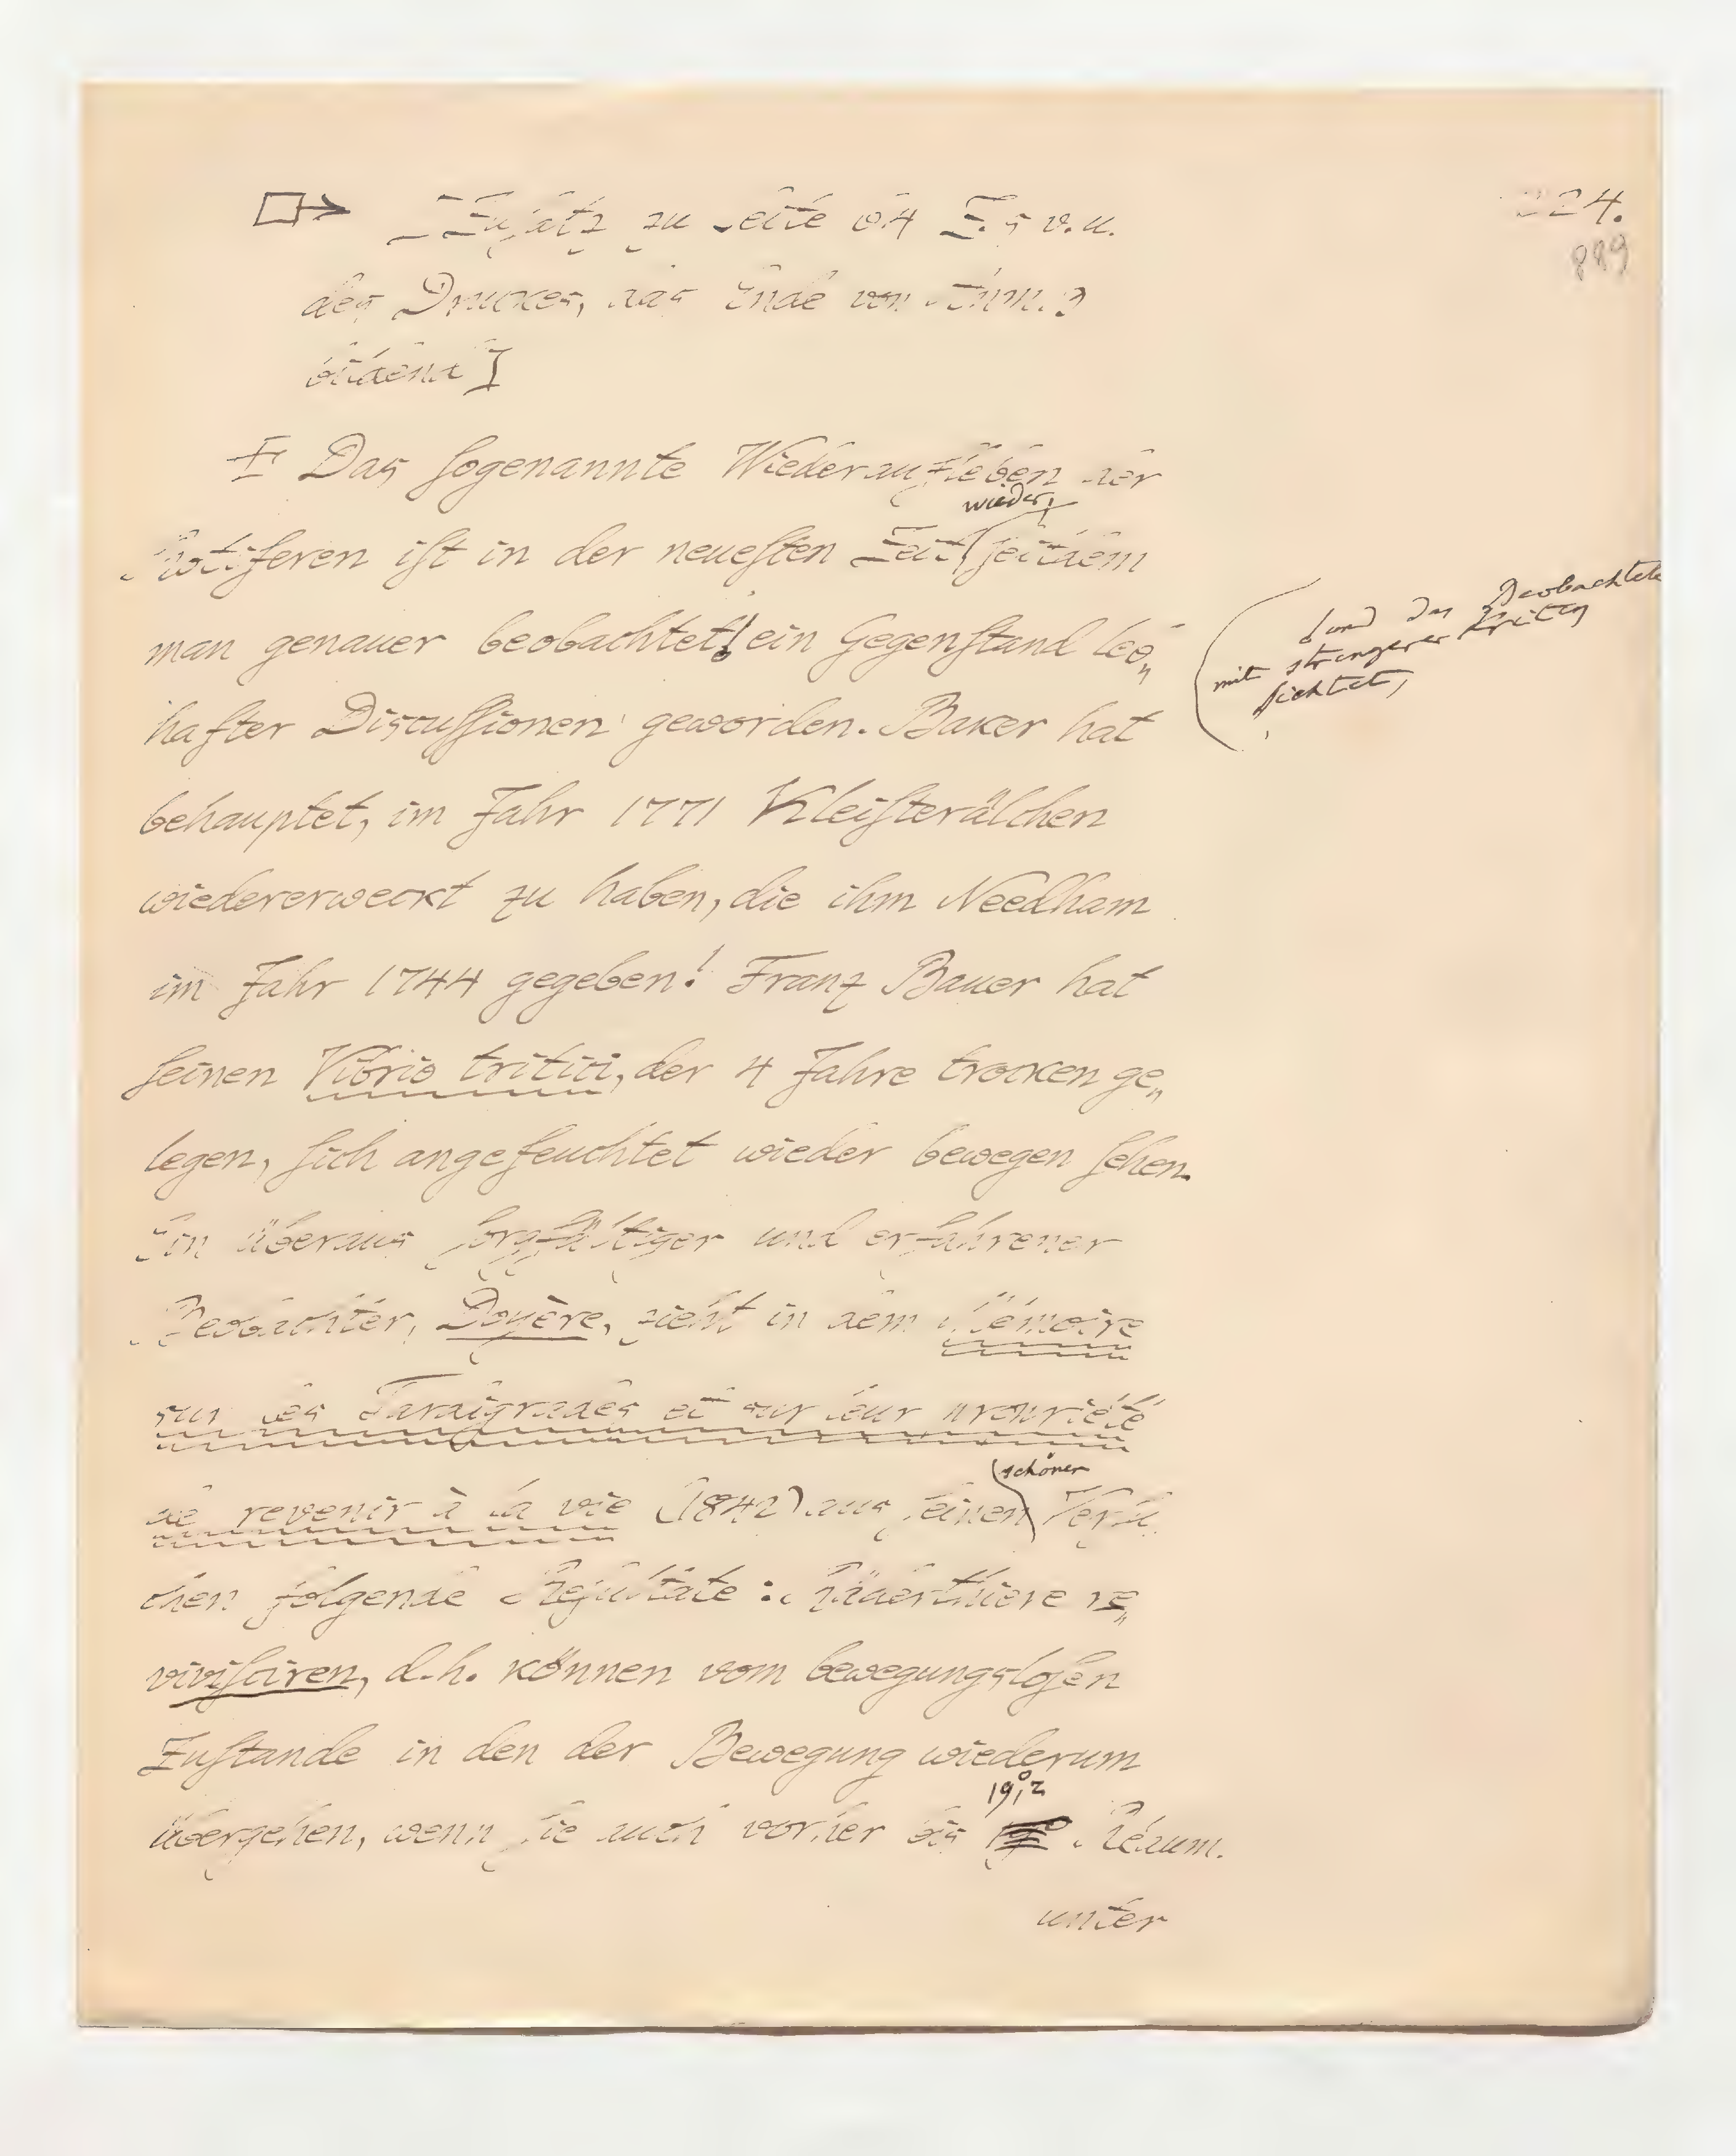 Zusatz zu Seite 64 Z. 5 v. u.
des Druckes, das Ende von Anm. 2
bildend]
Das sogenannte Wiederaufleben der
wieder,
Rotiferen ist in der neuesten Zeit seitdem
man genauer beobachtet ein Gegenstand leb„
und das Beobachtete
mit strengerer Kritik
sichtet,
hafter Discussionen geworden. Baker hat
behauptet, im Jahr 1771 Kleisterälchen
wiedererweckt zu haben, die ihm Needham
im Jahr 1744 gegeben! Franz Bauer hat
seinen Vibrio tritici, der 4 Jahre trocken ge„
legen, sich angefeuchtet wieder bewegen sehen.
Ein überaus sorgfältiger und erfahrener
Beobachter, Doyère, zieht in dem Mémoire
sur les Tardigrades et sur leur propriété
schönen
de revenir à la vie (1842) aus seinen Versu
chen folgende Resultate: Räderthiere re„
vivisciren, d. h. können vom bewegungslosen
Zustande in den der Bewegung wiederum
19°,2
übergehen, wenn sie auch vorher bis Réaum.
unter